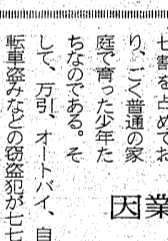 七割を占めてお
り、ごく普通の家
庭で育った少年た
ちなのである。そ
して、万引、オートバイ、自
転車盗みなどの窃盗犯が七七
業
因